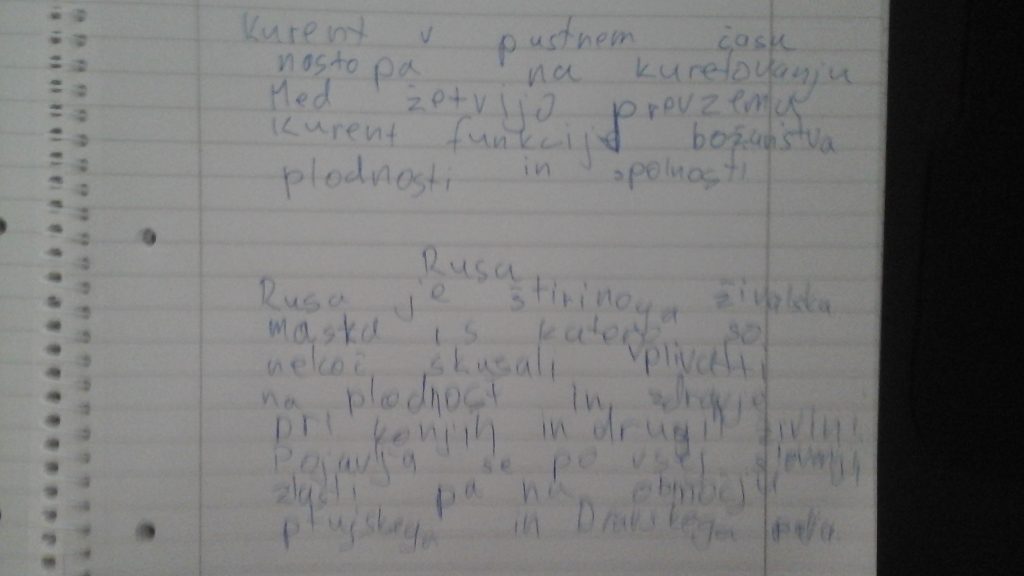 Kurent v pustnem času
nostopa na kuretovanju
Med žetvijo prevzema
Kurent funkcije božanstva
plodnosti in spolnosti
Rusa
Rusa je štirinoga živalska
maska s katero so
nekoč skušali vplivati
na plodnost in zdravje
pri konjih in drugih živini
Pojavlja se po vsej
zlasti pa na območju
ptujskega in Dravskega polja